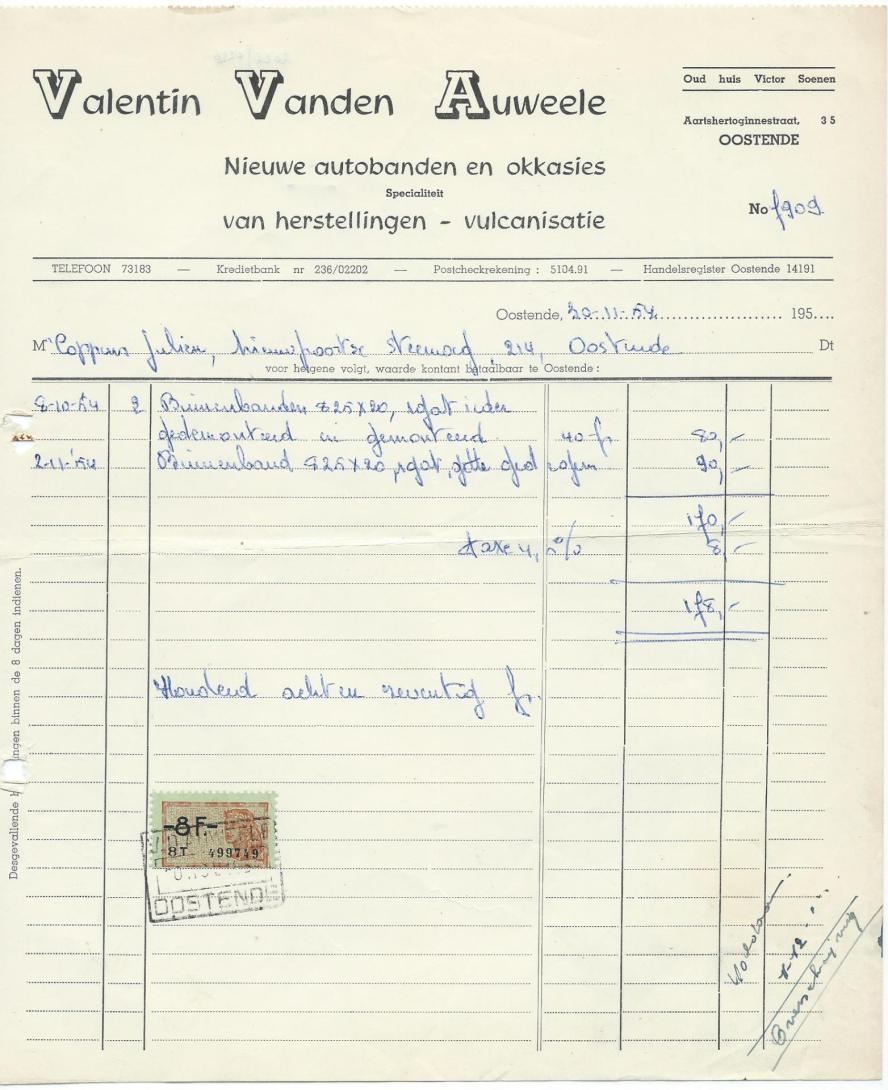 Valentin Vanden Auweele
Oud huis Victor Soenen
Aartshertoginnestraat, 35
OOSTENDE
Nieuwe autobanden en okkasies
Specialiteit
van herstellingen - vulcanisatie
No 1909
TELEFOON 73183 — Kredietbank nr 236/02202 — Postcheckrekening : 5104.91 — Handelsregister Oostende 14191
Oostende, 30-11-54 195....
Mr Coppens Julien, Nieuwpoortse Steenweg, 214, Oostende Dt
voor hetgene volgt, waarde kontant betaalbaar te Oostende :
8-10-54 2 Binnenbanden 825x20, 1 gat ieder
gedemonteerd en gemonteerd 40 fr 80,-
2-11-54 Binnenband 825x20, 1 gat, 90,-
170,-
taxe 4,5% 8,-
178,-
Honderd acht en zeventig fr.
Desgevallende ingen binnen de 8 dagen indienen.
-8F-
8T 499749
OOSTENDE
Voldaan
Overschrijving